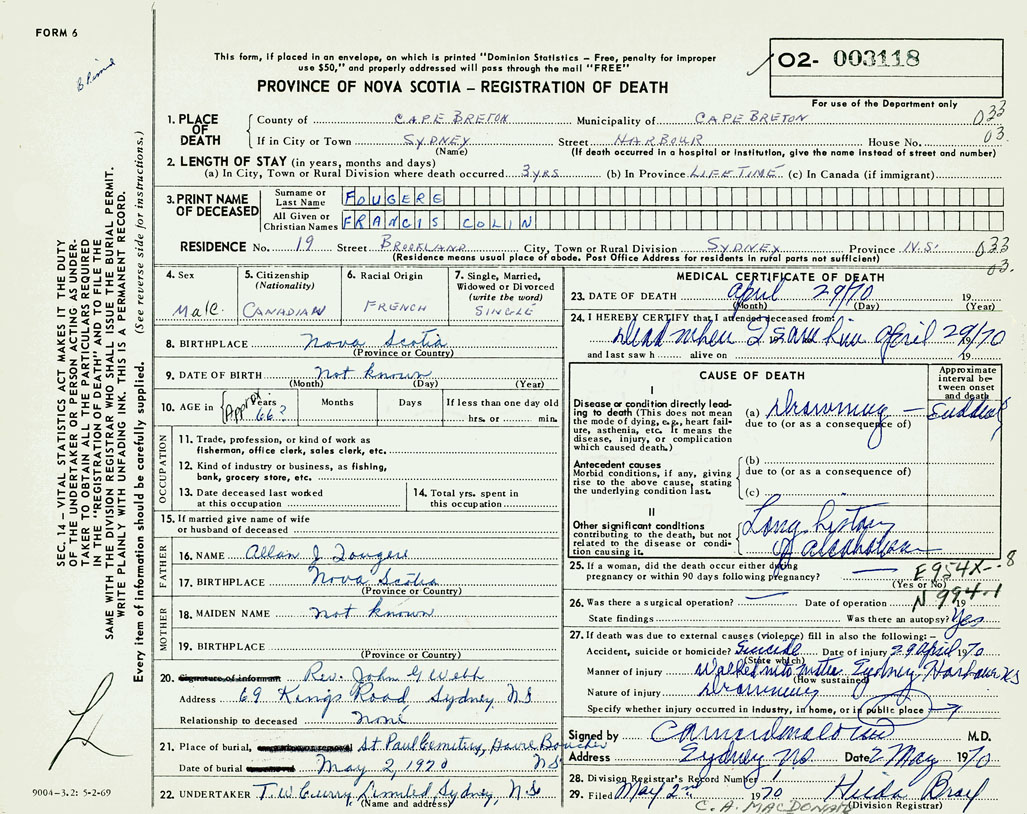 FORM 6
This form, if placed in an envelope, on which is printed "Dominion Statistics – Free, penalty for improper
use $50," and properly addressed will pass through the mail "FREE"
PROVINCE OF NOVA SCOTIA – REGISTRATION OF DEATH
02- 003118
For use of the Department only
1. PLACE OF DEATH
County of CAPE BRETON Municipality of CAPE BRETON 033
If in City or Town SYDNEY Street HARBOUR House No. 03.
(Name) (If death occurred in a hospital or institution, give the name instead of street and number)
2. LENGTH OF STAY (in years, months and days)
(a) In City, Town or Rural Division where death occurred 3 YRS (b) In Province LIFE TIME (c) In Canada (if immigrant)
3. PRINT NAME OF DECEASED
Surname or Last Name FOUGERE
All Given or Christian Names FRANCIS COLIN
RESIDENCE No. 19 Street BROOKLAND City, Town or Rural Division SYDNEY Province N.S. 033
(Residence means usual place of abode. Post Office Address for residents in rural parts not sufficient) 03.
4. Sex
Male
5. Citizenship
(Nationality)
CANADIAN
6. Racial Origin
FRENCH
7. Single, Married,
Widowed or Divorced
(write the word)
SINGLE
8. BIRTHPLACE Nova Scotia
(Province or Country)
9. DATE OF BIRTH Not known
(Month) (Day) (Year)
10. AGE in (Approx Years 66? Months Days If less than one day old
hrs. or min.
OCCUPATION
11. Trade, profession, or kind of work as
fisherman, office clerk, sales clerk, etc.
12. Kind of industry or business, as fishing,
bank, grocery store, etc.
13. Date deceased last worked
at this occupation
14. Total yrs. spent in
this occupation
15. If married give name of wife
or husband of deceased
FATHER
16. NAME Allan J Fougere
17. BIRTHPLACE Nova Scotia
(Province or Country)
MOTHER
18. MAIDEN NAME Not known
19. BIRTHPLACE
(Province or Country)
20. Signature of informant Rev. John G Webb
Address 69 Kings Road Sydney NS
Relationship to deceased none
21. Place of burial, cremation or removal St Paul Cemetery, Havre Boucher
Date of burial May 2, 1970 NS
22. UNDERTAKER T. W Curry Limited Sydney, N.S.
(Name and address)
MEDICAL CERTIFICATE OF DEATH
23. DATE OF DEATH April 29/70 19
(Month) (Day) (Year)
24. I HEREBY CERTIFY that I attended deceased from:
Dead when I saw him April 29/70
19
and last saw h alive on 19
CAUSE OF DEATH
Approximate
interval be-
tween onset
and death
I
Disease or condition directly lead-
ing to death (This does not mean
the mode of dying, e.g., heart fail-
ure, asthenia, etc. It means the
disease, injury, or complication
which caused death.)
(a) Drowning – Sudden
due to (or as a consequence of)
Antecedent causes
Morbid conditions, if any, giving
rise to the above cause, stating
the underlying condition last.
(b)
due to (or as a consequence of)
(c)
II
Other significant conditions
contributing to the death, but not
related to the disease or condi-
tion causing it.
Long history
of alcoholism
25. If a woman, did the death occur either during
pregnancy or within 90 days following pregnancy? —
(Yes or No)
E954X--8
N 994-1
26. Was there a surgical operation? — Date of operation 19
State findings Was there an autopsy? Yes
27. If death was due to external causes (violence) fill in also the following:–
Accident, suicide or homicide? Suicide Date of injury 29 April 1970
(State which)
Manner of injury Walked into water Sydney Harbour NS
(How sustained)
Nature of injury Drowning
Specify whether injury occurred in industry, in home, or in public place
Signed by M.D.
Address Sydney NS Date 2 May 1970
28. Division Registrar's Record Number
29. Filed May 2nd 1970 Hilda Bray
(Division Registrar)
C. A. MACDONALD
SEC. 14 – VITAL STATISTICS ACT MAKES IT THE DUTY
OF THE UNDERTAKER OR PERSON ACTING AS UNDER-
TAKER TO OBTAIN ALL THE PARTICULARS REQUIRED
IN THE "REGISTRATION OF DEATH" AND TO FILE THE
SAME WITH THE DIVISION REGISTRAR WHO SHALL ISSUE THE BURIAL PERMIT.
WRITE PLAINLY WITH UNFADING INK. THIS IS A PERMANENT RECORD.
Every item of information should be carefully supplied. (See reverse side for instructions.)
9004-3.2: 5-2-69